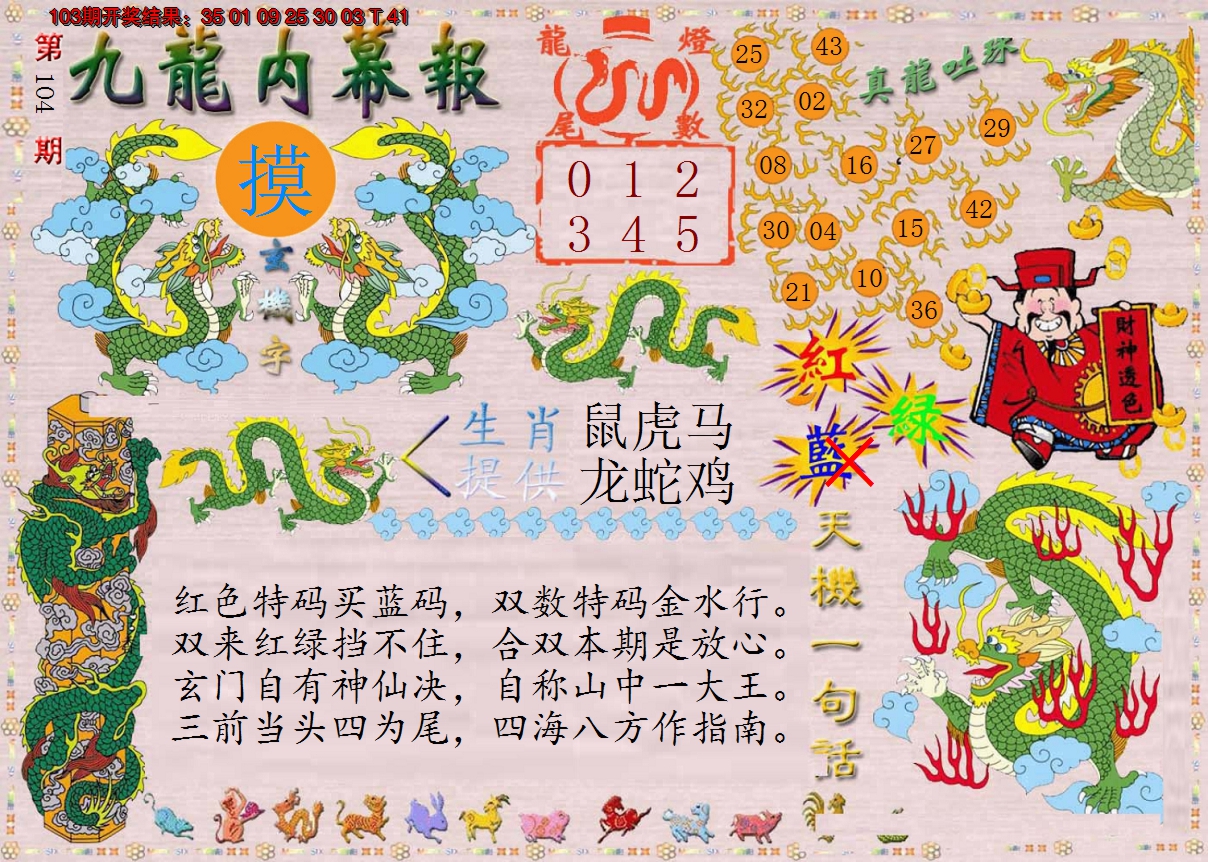 103期开奖结果：35 01 09 25 30 03 T 41
第104期
九龍内幕報
摸
玄機字
龍燈尾數
0 1 2
3 4 5
真龍吐珠
25 43
32 02
29
27
08 16
42
30 04 15
10
21
36
紅
綠
藍
財神透色
生肖 鼠虎马
提供 龙蛇鸡
天機一句話
红色特码买蓝码，双数特码金水行。
双来红绿挡不住，合双本期是放心。
玄门自有神仙决，自称山中一大王。
三前当头四为尾，四海八方作指南。